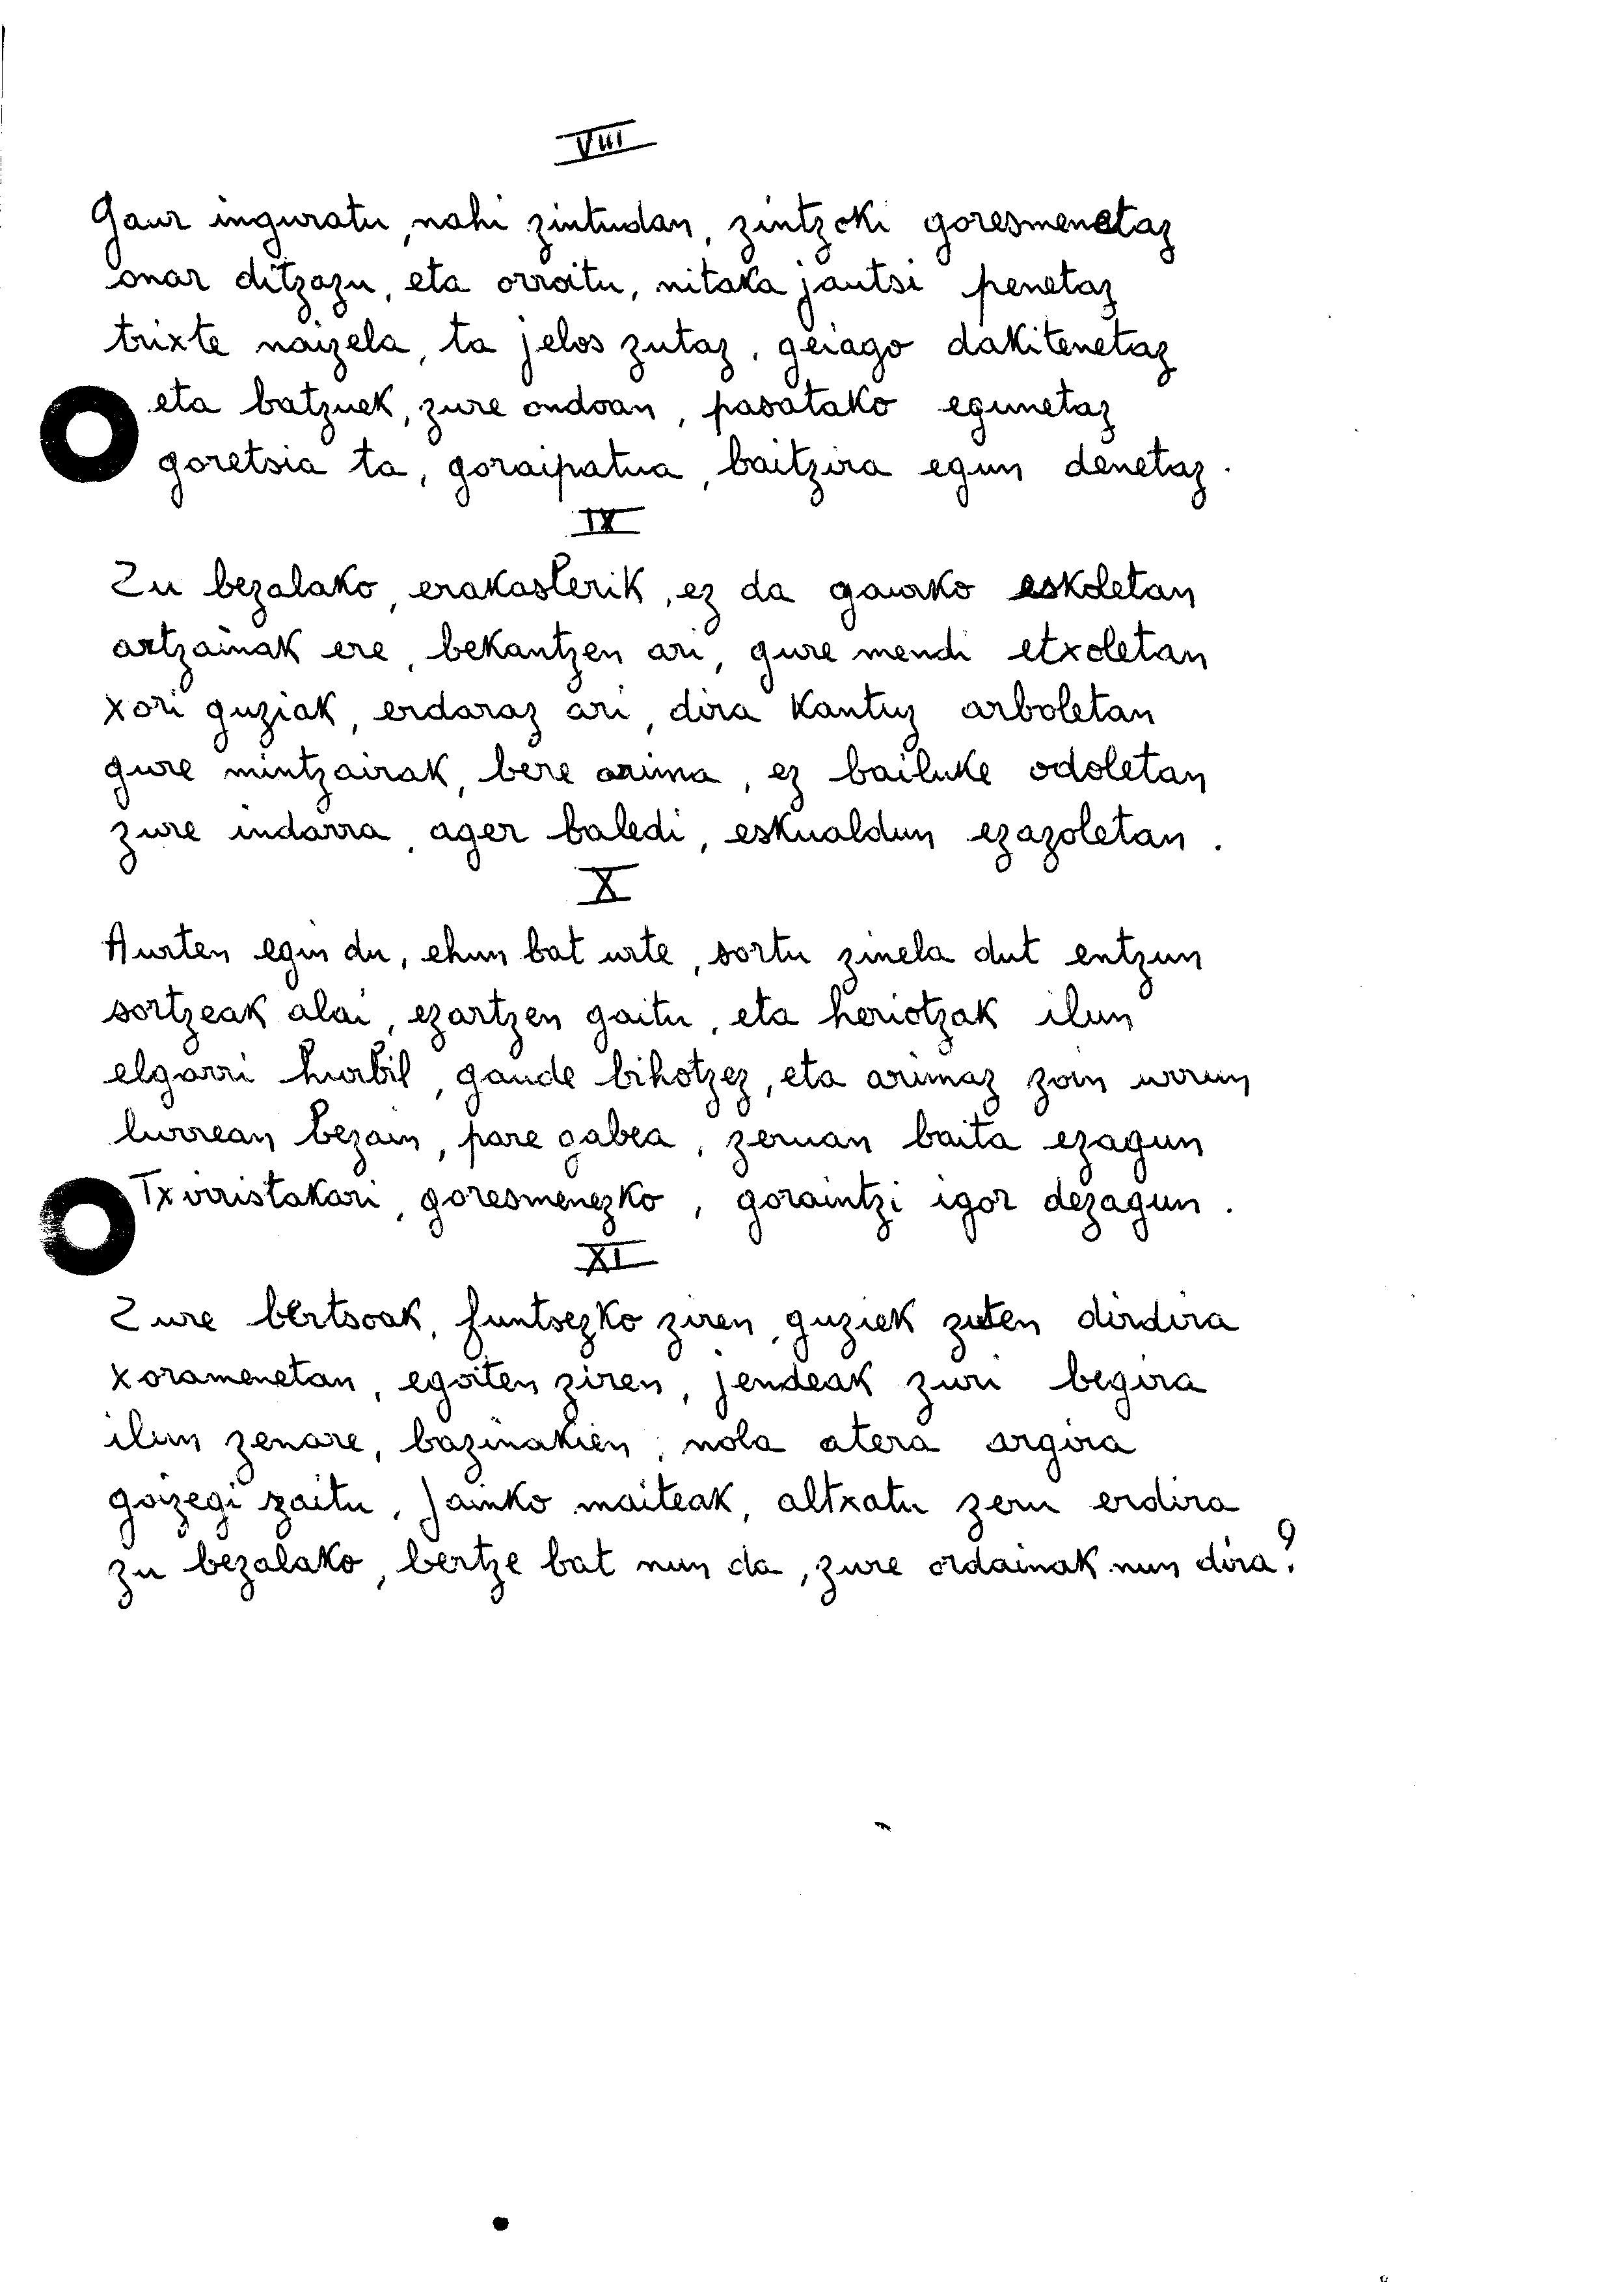 VIII
Gaur inguratu, nahi zintudan, zintzoki goresmenetaz
onar ditzazu, eta orroitu, nitaka jautsi penetaz
trixte naizela, ta jelos zutaz, geiago dakitenetaz
eta batzuek, zure ondoan, pasatako egunetaz
goretsia ta, goraipatua, baitzira egun denetaz.
IX
Zu bezalako, erakasterik, ez da gaurko eskoletan
artzainak ere, bekantzen ari, gure mendi etxoletan
xori guziak, erdaraz ari, dira kantuz arboletan
gure mintzairak, bere arima, ez bailuke odoletan
zure indarra, ager baledi, eskualdun ezazoletan.
X
Aurten egin du, ehun bat urte, sortu zinela dut entzun
sortzeak alai, ezartzen gaitu, eta heriotzak ilun
elgarri hurbil, gaude bihotzez, eta arimaz zoin urrun
lurrean bezain, pare gabea, zeruan baita ezagun
Txirristakari, goresmenezko, goraintzi igor dezagun.
XI
Zure bertsoak, funtsezko ziren, guziek zuten dirdira
xoramenetan, egoiten ziren, jendeak zuri begira
ilun zenare, bazinakien, nola atera argira
goizegi zaitu, Jainko maiteak, altxatu zeru erdira
zu bezalako, bertze bat nun da, zure ordainak nun dira?